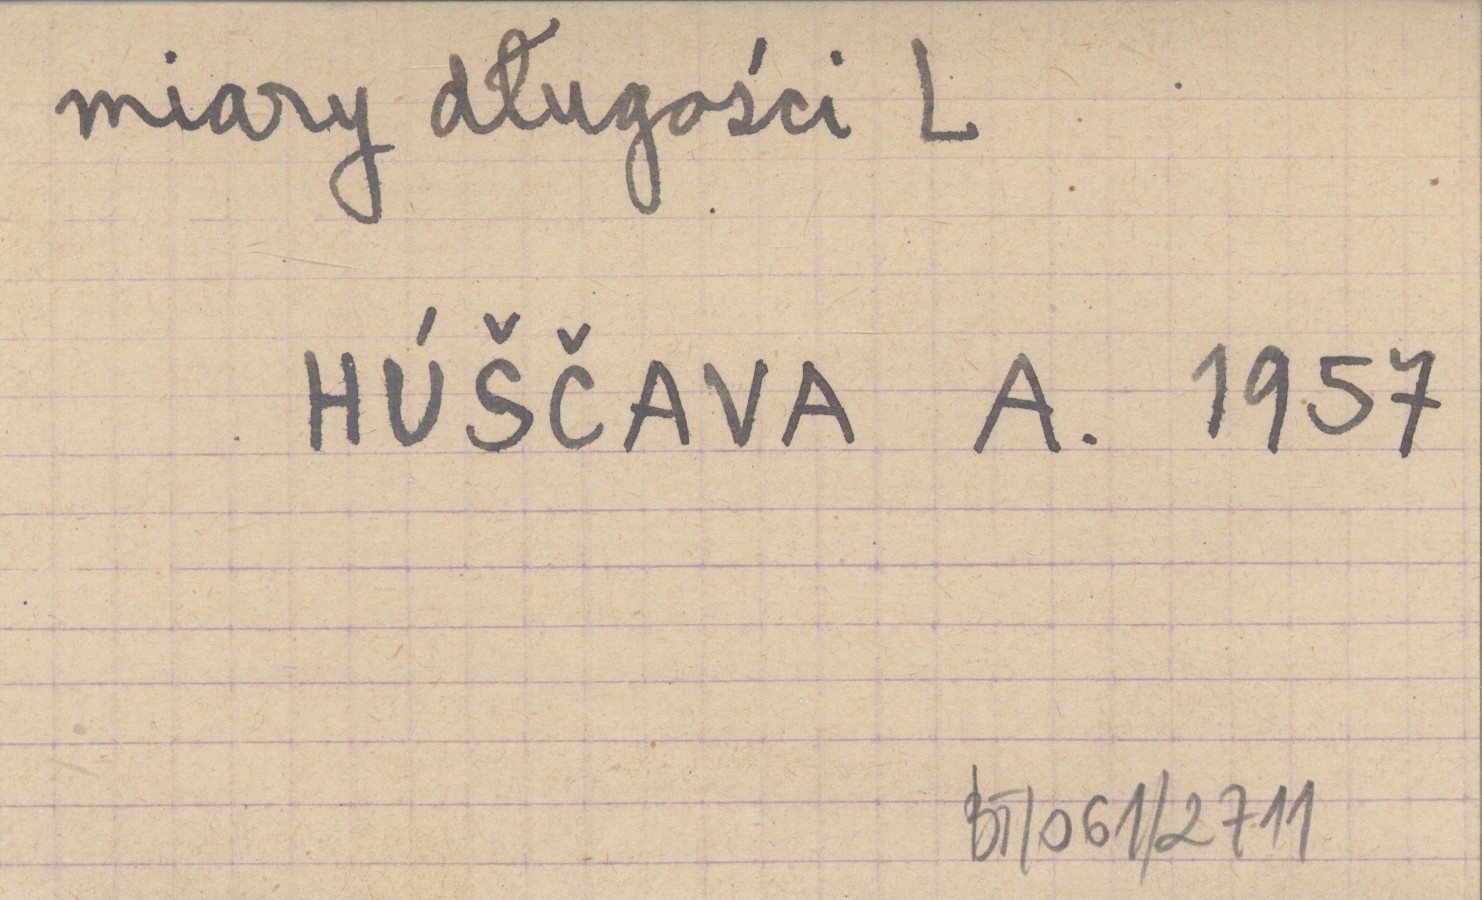 miary długości L
HÚŠČAVA A. 1957
BT/061/2711